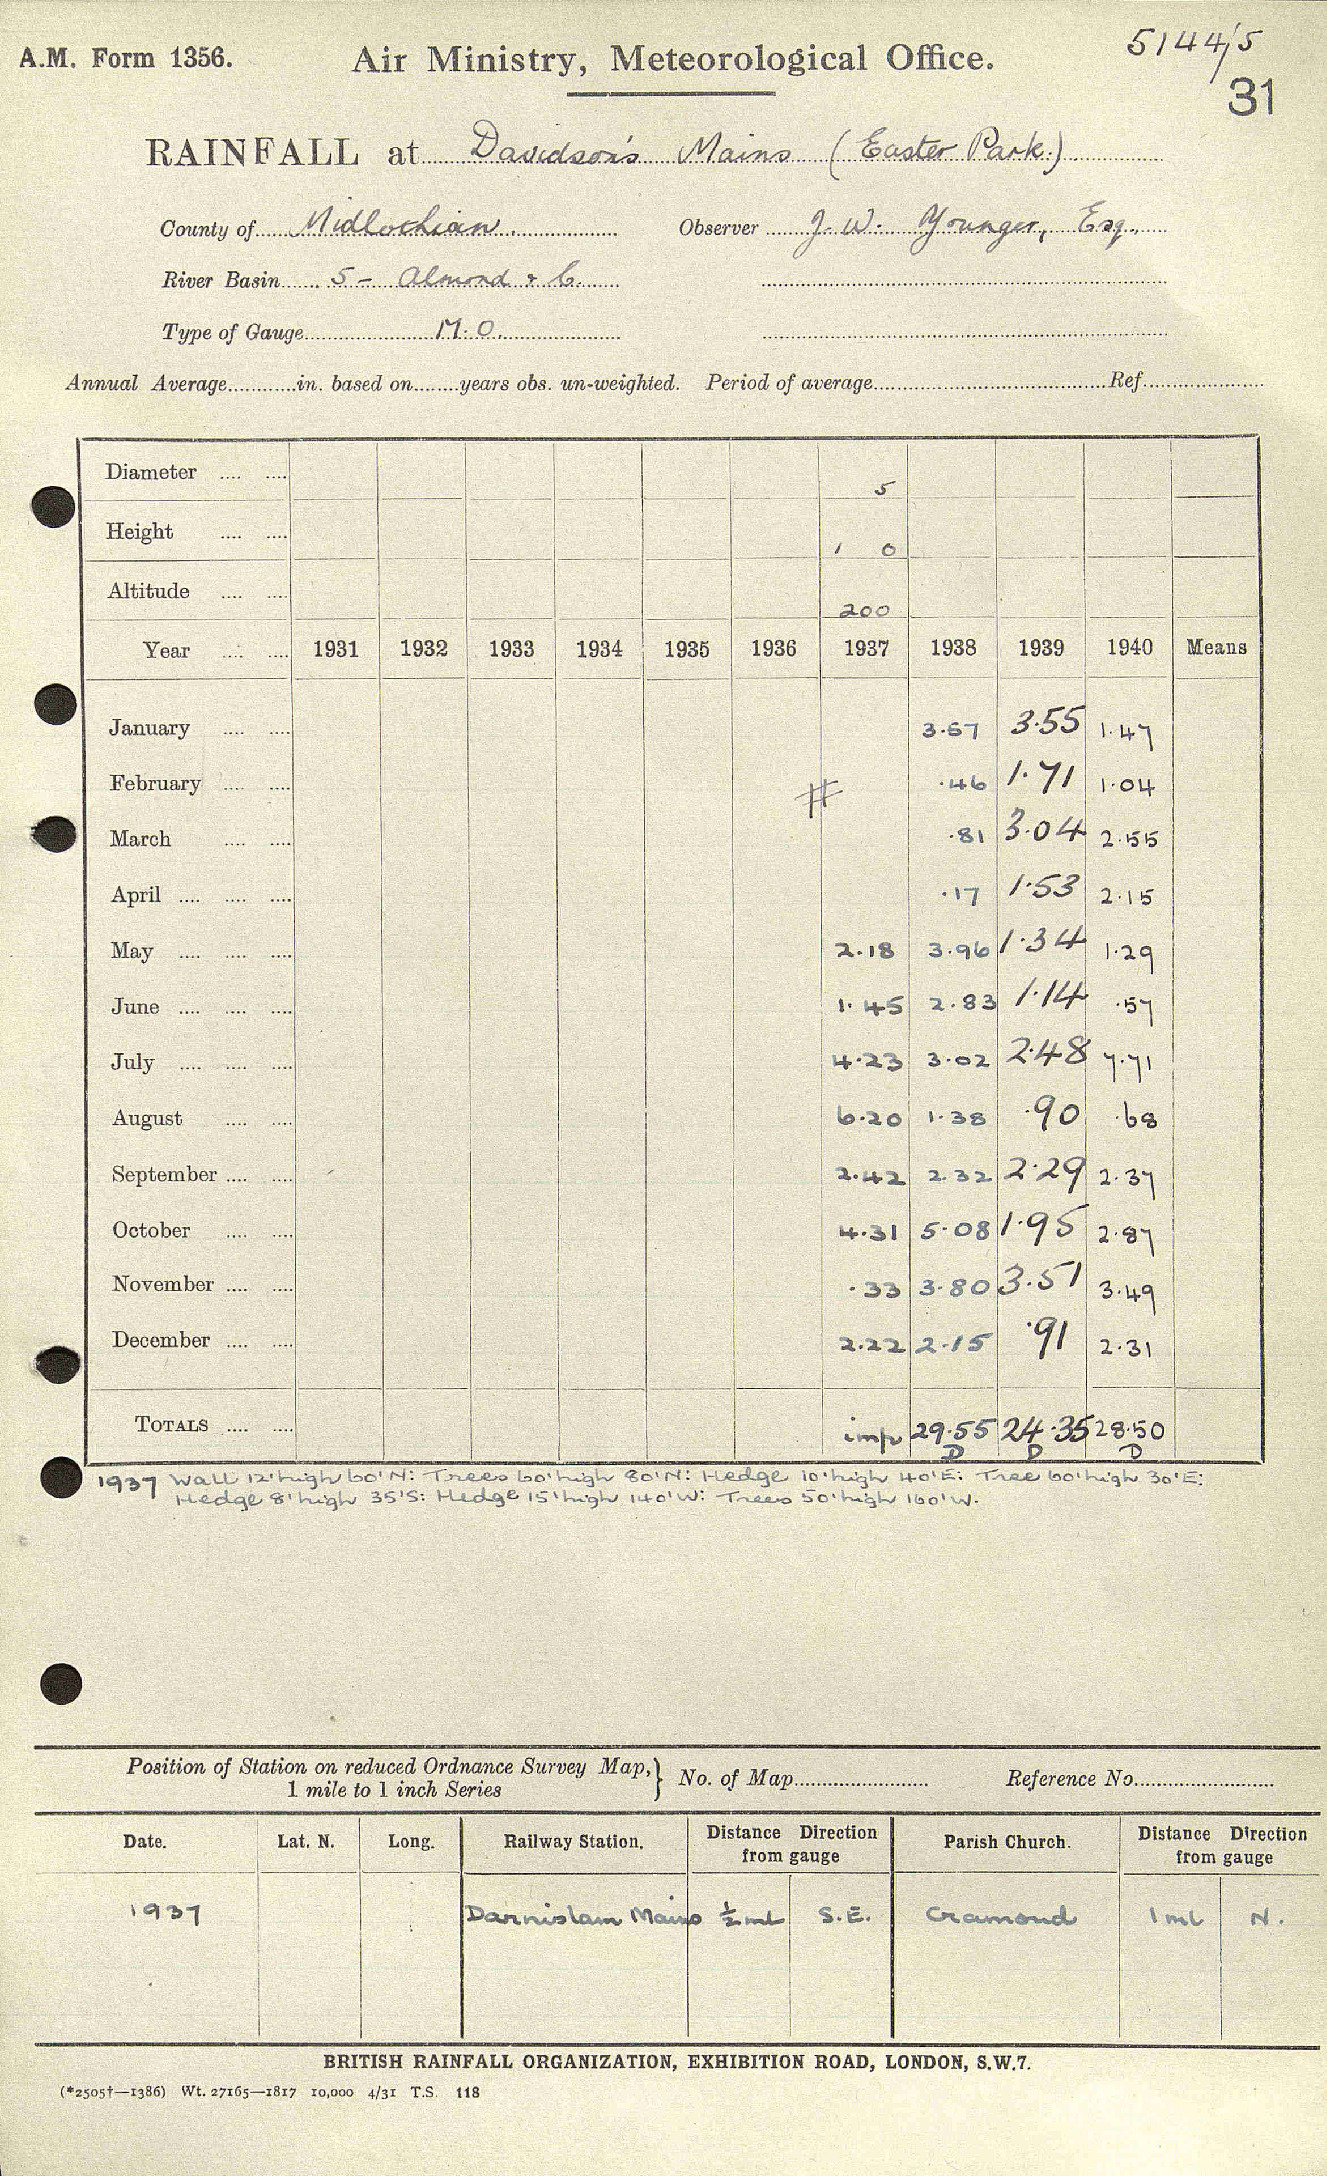 A.M. Form 1356.
Air Ministry, Meteorological Office.
5144/5
31
RAINFALL at Davidson's Mains (Easter Park.)
County of Midlothian. Observer J. W. Younger, Esq.,
River Basin 5 - Almond & C.
Type of Gauge M.O.
Annual Average in. based on years obs. un-weighted. Period of average Ref
Diameter 5
Height 1 0
Altitude 200
Year 1931 1932 1933 1934 1935 1936 1937 1938 1939 1940 Means
January 3.57 3.55 1.47
February # .46 1.71 1.04
March .81 3.04 2.55
April .17 1.53 2.15
May 2.18 3.96 1.34 1.29
June 1.45 2.83 1.14 .57
July 4.23 3.02 2.48 7.71
August 6.20 1.38 .90 .68
September 2.42 2.32 2.29 2.37
October 4.31 5.08 1.95 2.87
November .33 3.80 3.51 3.49
December 2.22 2.15 .91 2.31
TOTALS imp 29.55 24.35 28.50
D D D
1937 Wall 12'high 60'N: Trees 60'high 80'N: Hedge 10'high 40'E: Tree 60'high 30'E:
Hedge 8'high 35'S: Hedge 15'high 140'W: Trees 50'high 160'W.
Position of Station on reduced Ordnance Survey Map,} No. of Map Reference No.
1 mile to 1 inch Series
Date. Lat. N. Long. Railway Station. Distance Direction from gauge Parish Church. Distance Direction from gauge
1937 Darnislam Mains ½ ml S.E. Cramond 1 ml N.
BRITISH RAINFALL ORGANIZATION, EXHIBITION ROAD, LONDON, S.W.7.
(*2505†—1386) Wt. 27165—1817 10,000 4/31 T.S. 118